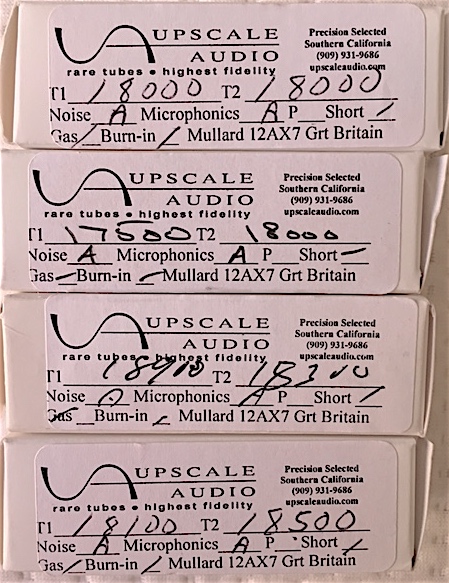 UPSCALE
AUDIO
rare tubes • highest fidelity
Precision Selected
Southern California
(909) 931-9686
upscaleaudio.com
T1 18000 T2 18000
Noise A Microphonics A P Short /
Gas / Burn-in / Mullard 12AX7 Grt Britain
UPSCALE
AUDIO
rare tubes • highest fidelity
Precision Selected
Southern California
(909) 931-9686
upscaleaudio.com
T1 17500 T2 18000
Noise A Microphonics A P Short /
Gas / Burn-in / Mullard 12AX7 Grt Britain
UPSCALE
AUDIO
rare tubes • highest fidelity
Precision Selected
Southern California
(909) 931-9686
upscaleaudio.com
T1 18900 T2 18300
Noise A Microphonics A P Short /
Gas Burn-in / Mullard 12AX7 Grt Britain
UPSCALE
AUDIO
rare tubes • highest fidelity
Precision Selected
Southern California
(909) 931-9686
upscaleaudio.com
T1 18100 T2 18500
Noise A Microphonics A P Short /
Gas / Burn-in / Mullard 12AX7 Grt Britain